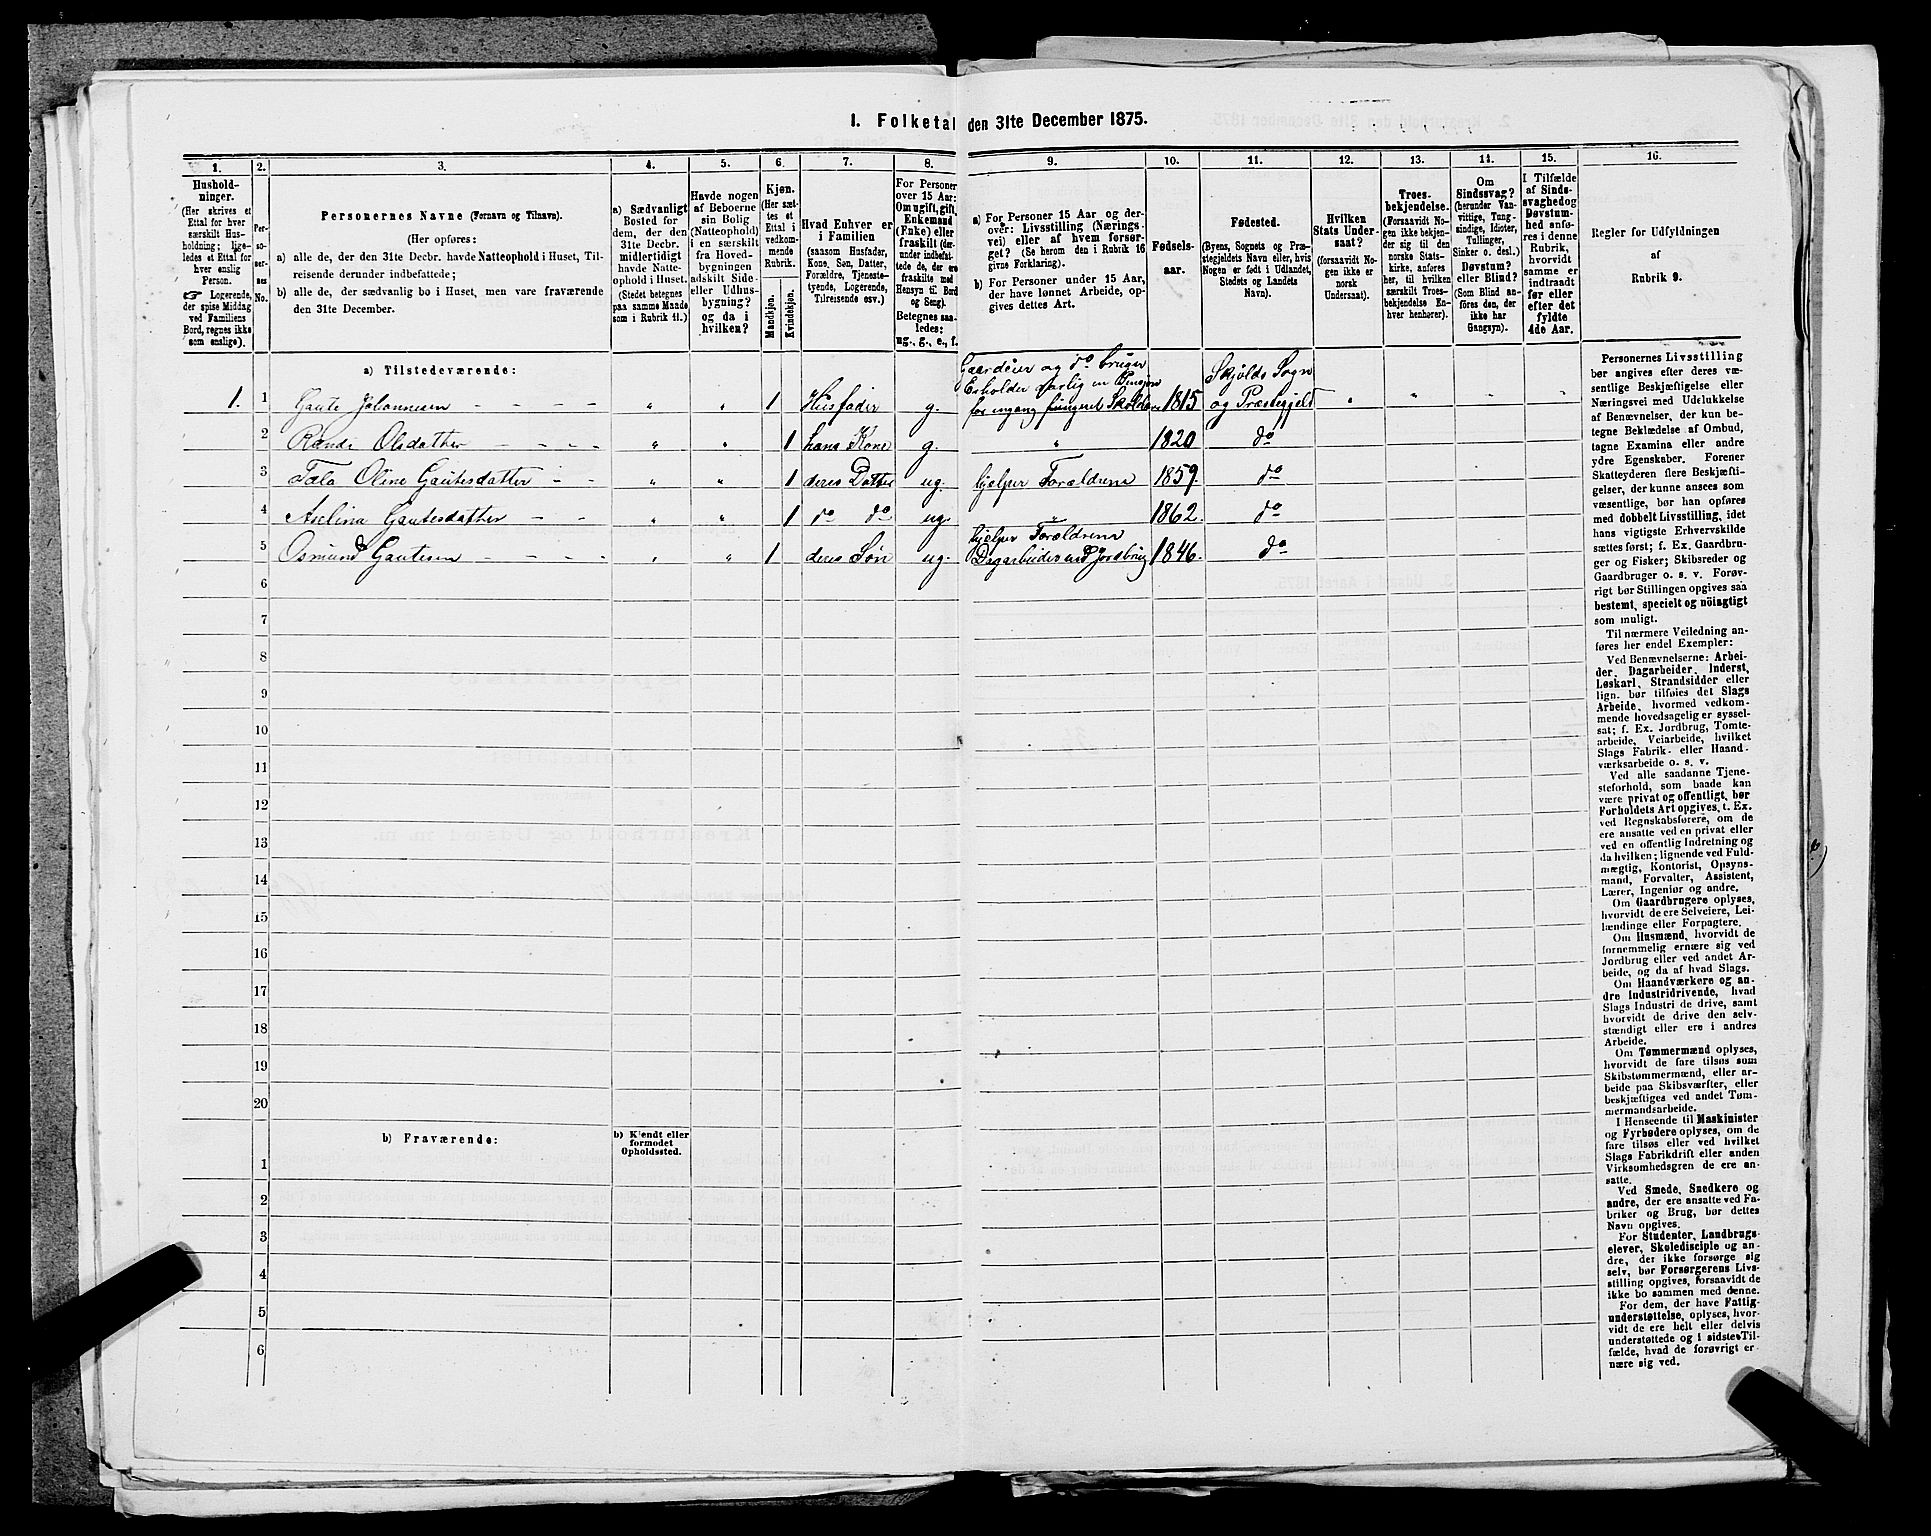 1. Folketal den 31te December 1875.
1.
2.
3.
4.
5.
6.
7.
8.
9.
10.
11.
12.
13.
14.
15.
16.
Hushold-
ninger.
(Her skrives et
Ettal for hver
særskilt Hus-
holdning; lige-
ledes et Ettal for
hver enslig
Person.
☞ Logerende,
der spise Middag
ved Familiens
Bord, regnes ikke
som enslige).
Per-
so-
ner-
nes
No.
Personernes Navne (Fornavn og Tilnavn).
(Her opføres:
a) alle de, der den 31te Decbr. havde Natteophold i Huset, Til-
reisende derunder indbefattede;
b) alle de, der sædvanlig bo i Huset, men vare fraværende
den 31te December.
a) Sædvanligt
Bosted for
dem, der den
31te Decbr.
midlertidigt
havde Natte-
ophold i Huset.
(Stedet betegnes
paa samme Maade
som i Rubrik 11.)
Havde nogen
af Beboerne
sin Bolig
(Natteophold)
i en særskilt
fra Hoved-
bygningen
adskilt Side
eller Udhus-
bygning?
og da i
hvilken?
Kjøn.
(Her sæt-
tes et
Ettal i
vedkom-
mende
Rubrik.
Mandkjøn.
Kvindekjøn.
Hvad Enhver er
i Familien
(saasom Husfader,
Kone, Søn, Datter,
Forældre, Tjeneste-
tyende, Logerende,
Tilreisende osv.)
For Personer
over 15 Aar:
Om ugift, gift,
Enkemand
(Enke) eller
fraskilt (der-
under indbefat-
tede de, der ere
fraskilte med
Hensyn til Bord
og Seng).
Betegnes saa-
ledes:
ug., g., e., f.
a) For Personer 15 Aar og der-
over: Livsstilling (Nærings-
vei) eller af hvem forsør-
get? (Se herom den i Rubrik 16
givne Forklaring).
b) For Personer under 15 Aar,
der have lønnet Arbeide, op-
gives dettes Art.
Fødsels-
aar.
Fødested.
(Byens, Sognets og Præ-
stegjeldets Navn eller, hvis
Nogen er født i Udlandet,
Stedets og Landets
Navn).
Hvilken
Stats Under-
saat?
(forsaavidt No-
gen ikke er
norsk
Undersaat).
Troes-
bekjendelse.
(Forsaavidt No-
gen ikke bekjen-
der sig til den
norske Stats-
kirke, anføres
her, til hvilken
særskilt Troes-
bekjendelse En-
hver henhører).
Om
Sindssvag?
(herunder Van-
vittige, Tung-
sindige, Idioter,
Tullinger,
Sinker o. desl.).
Døvstum?
eller Blind?
(Som Blind an-
føres den, der
ikke har
Gangsyn).
I Tilfælde
af Sinds-
svaghed og
Døvstum-
hed anfø-
res i denne
Rubrik,
hvorvidt
samme er
indtraadt
før eller
efter det
fyldte
4de Aar.
Regler for Udfyldningen
af
Rubrik 9.
a) Tilstedeværende:
1. 1 Gaute Johannesen " " 1 Husfader g. Gaardeier og do bruger
1815 Skjolds Sogn
og Præstegjeld " " " "
2 Randi Olsdatter " " 1 hans Kone g. " 1820 do
3 Tala Oline Gautesdatter " " 1 deres Datter ug. hjelper Forældrene 1859. do
4 Aselina Gautesdatter " " 1 do do ug. " 1862. do
5 Osmund Gautesen " " 1 deres Søn ug. hjelper Forældrene
Dagarbeider ved Jordbrug 1846. do
6
7
8
9
10
11
12
13
14
15
16
17
18
19
20
b) Fraværende:
b) Kjendt eller
formodet
Opholdssted.
1
2
3
4
5
6
Personernes Livsstilling
bør angives efter deres væ-
sentlige Beskjæftigelse eller
Næringsvei med Udelukkelse
af Benævnelser, der kun be-
tegne Beklædelse af Ombud,
tagne Examina eller andre
ydre Egenskaber. Forener
Skatteyderen flere Beskjæfti-
gelser, der kunne ansees som
væsentlige, bør han opføres
med dobbelt Livsstilling, idet
hans vigtigste Erhvervskilde
sættes først; f. Ex. Gaardbru-
ger og Fisker; Skibsreder og
Gaardbruger o. s. v. Forøv-
rigt bør Stillingen opgives saa
bestemt, specielt og nöiagtigt
som muligt.
Til nærmere Veiledning an-
føres her endel Exempler:
Ved Benævnelserne: Arbei-
der, Dagarbeider, Inderst,
Løskarl, Strandsidder eller
lign. bør tilføies det Slags
Arbeide, hvormed vedkom-
mende hovedsagelig er syssel-
sat; f. Ex. Jordbrug, Tomte-
arbeide, Veiarbeide, hvilket
Slags Fabrik- eller Haand-
værksarbeide o. s. v.
Ved alle saadanne Tjene-
steforhold, som baade kan
være privat og offentligt, bør
Forholdets Art opgives, t. Ex.
ved Regnskabsførere, om de
ere ansatte ved en privat eller
ved en offentlig Indretning og
da hvilken; lignende ved Fuld-
mægtig, Kontorist, Opsyns-
mand, Forvalter, Assistent,
Lærer, Ingeniør og andre.
Om Gaardbrugere oplyses,
hvorvidt de ere Selveiere, Lei-
lændinge eller Forpagtere.
Om Husmænd, hvorvidt de
fornemmelig ernære sig ved
Jordbrug eller ved andet Ar-
beide, og da af hvad Slags.
Om Haandværkere og an-
dre Industridrivende, hvad
Slags Industri de drive, samt
hvorvidt de drive den selv-
stændigt eller ere i andres
Arbeide.
Om Tømmermænd oplyses,
hvorvidt de fare tilsøs som
Skibstømmermænd, eller ar-
beide paa Skibsværfter, eller
beskjæftiges ved andet Tøm-
mermandsarbeide.
I Henseende til Maskinister
og Fyrbødere oplyses, om de
fare tilsøs eller ved hvilket
Slags Fabrikdrift eller anden
Virksomhedsgren de ere an-
satte.
Ved Smede, Snedkere og
andre, der ere ansatte ved Fa-
briker og Brug, bør dettes
Navn opgives.
For Studenter, Landbrugs-
elever, Skoledisciple og an-
dre, der ikke forsørge sig
selv, bør Forsørgerens Livs-
stilling opgives, forsaavidt de
ikke bo sammen med denne.
For dem, der have Fattig-
understøttelse, oplyses, hvor-
vidt de ere helt eller delvis
understøttede og i sidste Til-
fælde, hvad de forøvrigt er-
nære sig ved.